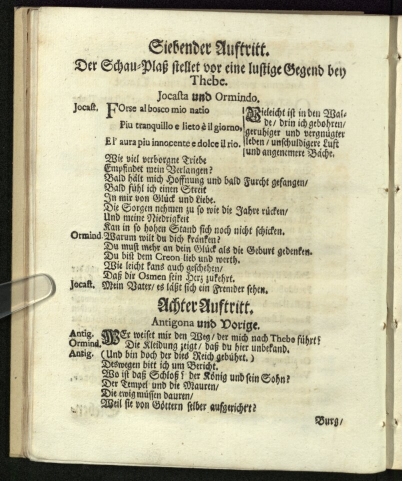 Siebender Auftritt.
Der Schau-Platz stellet vor eine lustige Gegend bey
Thebe.
Jocasta und Ormindo.
Jocast. FOrse al bosco mio natio
Piu tranquillo e lieto è il giorno,
E l' aura piu innocente e dolce il rio.
Vieleicht ist in den Wal-
de/ drin ich gebohren/
geruhiger und vergnügter
leben/ unschuldigere Lust
und angenemere Bäche.
Wie viel verborgne Triebe
Empfindet mein Verlangen?
Bald hält mich Hoffnung und bald Furcht gefangen/
Bald fühl ich einen Streit
In mir von Glück und Liebe.
Die Sorgen nehmen zu so wie die Jahre rücken/
Und meine Niedrigkeit
Kan in so hohen Stand sich noch nicht schicken.
Ormind. Warum wilt du dich kränken?
Du must mehr an dein Glück als die Geburt gedenken.
Du bist dem Creon lieb und werth.
Wie leicht kans auch geschehen/
Daß dir Osmen sein Herz zukehrt.
Jocast. Mein Vater/ es läßt sich ein Fremder sehen.
Achter Auftritt.
Antigona und Vorige.
Antig. WEr weiset mir den Weg/ der mich nach Thebe führt?
Ormind. Die Kleidung zeigt/ daß du hier unbekand.
Antig. (Und bin doch der dies Reich gebührt.)
Deswegen bitt ich um Bericht.
Wo ist daß Schloß? der König und sein Sohn?
Der Tempel und die Mauren/
Die ewig müssen dauren/
Weil sie von Göttern selber aufgericht't?
Burg/